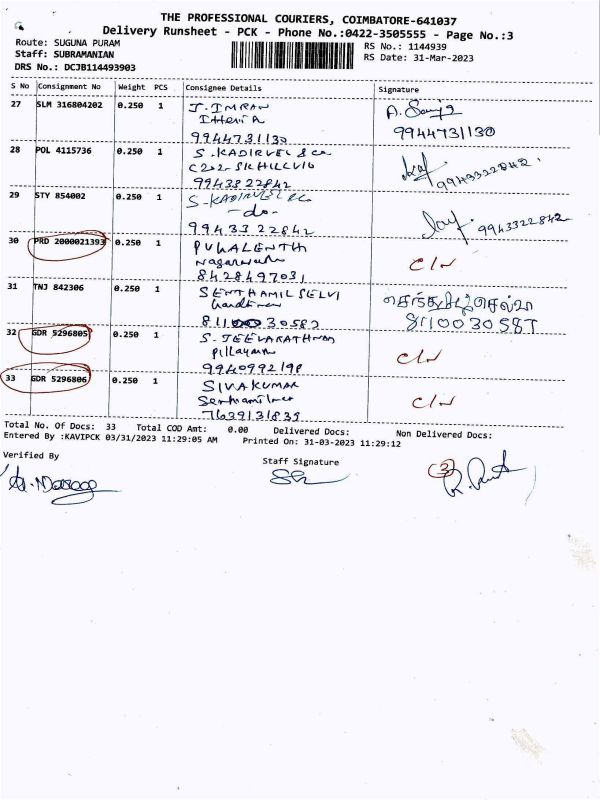 THE PROFESSIONAL COURIERS, COIMBATORE-641037
Delivery Runsheet - PCK - Phone No.:0422-3505555 - Page No.:3
Route: SUGUNA PURAM
RS No.: 1144939
Staff: SUBRAMANIAN
RS Date: 31-Mar-2023
DRS No.: DCJB114493903
S No Consignment No Weight PCS Consignee Details Signature
27 SLM 316804202 0.250 1 J. IMRAN
9944731130 9944731130
28 POL 4115736 0.250 1 S. KADIRVEL & co
9943322842 9943322842
29 STY 854002 0.250 1 S-KADIRVEL & co
-do-
9943322842 9943322842
30 PRD 2000021393 0.250 1 PUKALENTHI
8428497031
31 TNJ 842306 0.250 1 SENTHAMIL SELVI
8110030587
32 GDR 5296805 0.250 1 S. JEEVARATHNAM
33 GDR 5296806 0.250 1 SIVAKUMAR
7639131839
Total No. Of Docs: 33 Total COD Amt: 0.00 Delivered Docs: Non Delivered Docs:
Entered By :KAVIPCK 03/31/2023 11:29:05 AM Printed On: 31-03-2023 11:29:12
Verified By
Staff Signature
3